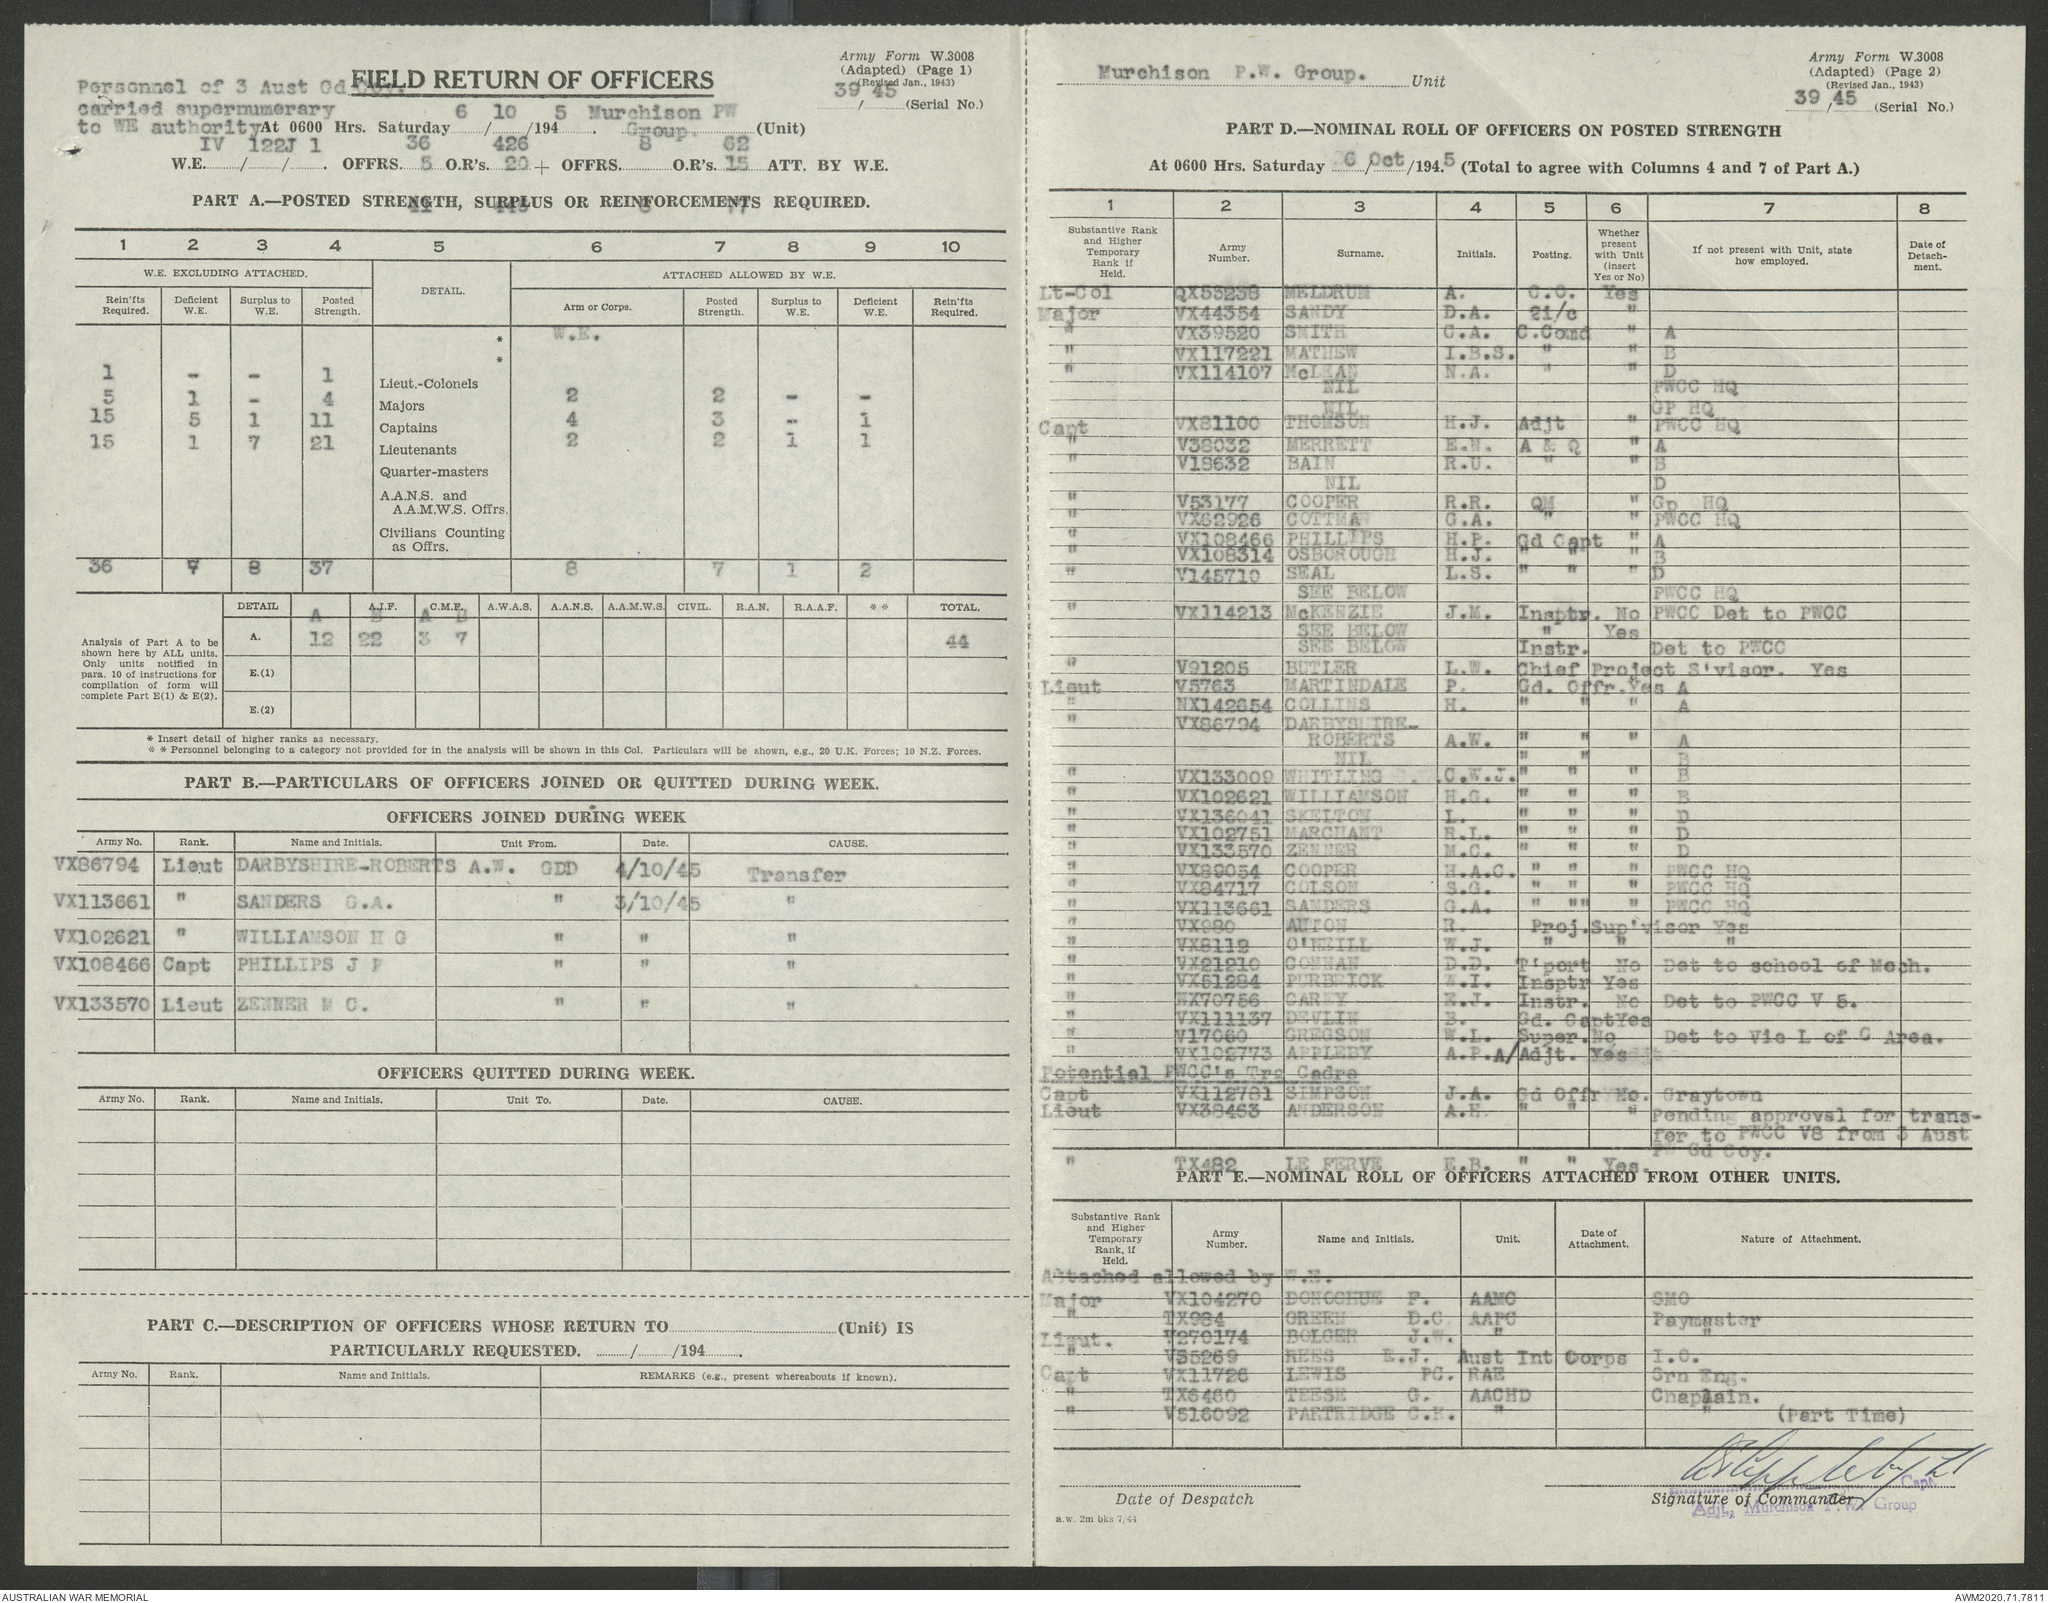 Army Form W.3008
(Adapted) (Page 1)
(Revised Jan., 1943)
39/45 (Serial No.)
FIELD RETURN OF OFFICERS
Personnel of 3 Aust Gd
carried supernumerary
to WE authority At 0600 Hrs. Saturday 6/10/1945. Murchison PW Group. (Unit)
IV 122J 1 36 426 8 62
W.E. / / . OFFRS. 5 O.R's. 20 + OFFRS. O.R's. 15 ATT. BY W.E.
PART A.—POSTED STRENGTH, SURPLUS OR REINFORCEMENTS REQUIRED.
1 2 3 4 5 6 7 8 9 10
W.E. EXCLUDING ATTACHED. DETAIL. ATTACHED ALLOWED BY W.E.
Rein'fts Required. Deficient W.E. Surplus to W.E. Posted Strength. Arm or Corps. Posted Strength. Surplus to W.E. Deficient W.E. Rein'fts Required.
* W.E.
*
1 - - 1 Lieut.-Colonels
5 1 - 4 Majors 2 2 - -
15 5 1 11 Captains 4 3 - 1
15 1 7 21 Lieutenants 2 2 1 1
Quarter-masters
A.A.N.S. and
A.A.M.W.S. Offrs.
Civilians Counting
as Offrs.
36 7 8 37 8 7 1 2
DETAIL A.I.F. C.M.F. A.W.A.S. A.A.N.S. A.A.M.W.S. CIVIL. R.A.N. R.A.A.F. * * TOTAL.
A B A B
Analysis of Part A to be shown here by ALL units. Only units notified in para. 10 of instructions for compilation of form will complete Part E(1) & E(2).
A. 12 22 3 7 44
E.(1)
E.(2)
* Insert detail of higher ranks as necessary.
* * Personnel belonging to a category not provided for in the analysis will be shown in this Col. Particulars will be shown, e.g., 20 U.K. Forces; 10 N.Z. Forces.
PART B.—PARTICULARS OF OFFICERS JOINED OR QUITTED DURING WEEK.
OFFICERS JOINED DURING WEEK
Army No. Rank. Name and Initials. Unit From. Date. CAUSE.
VX86794 Lieut DARBYSHIRE-ROBERTS A.W. GDD 4/10/45 Transfer
VX113661 " SANDERS G.A. " 3/10/45 "
VX102621 " WILLIAMSON H G " " "
VX108466 Capt PHILLIPS J P " " "
VX133570 Lieut ZENNER M C. " " "
OFFICERS QUITTED DURING WEEK.
Army No. Rank. Name and Initials. Unit To. Date. CAUSE.
PART C.—DESCRIPTION OF OFFICERS WHOSE RETURN TO (Unit) IS
PARTICULARLY REQUESTED. / /194 .
Army No. Rank. Name and Initials. REMARKS (e.g., present whereabouts if known).
Army Form W.3008
(Adapted) (Page 2)
(Revised Jan., 1943)
39/45 (Serial No.)
Murchison P.W. Group. Unit
PART D.—NOMINAL ROLL OF OFFICERS ON POSTED STRENGTH
At 0600 Hrs. Saturday 6/Oct/1945 (Total to agree with Columns 4 and 7 of Part A.)
1 2 3 4 5 6 7 8
Substantive Rank and Higher Temporary Rank if Held. Army Number. Surname. Initials. Posting. Whether present with Unit (insert Yes or No) If not present with Unit, state how employed. Date of Detachment.
Lt-Col QX53238 MELDRUM A. C.O. Yes
Major VX44354 SANDY D.A. 2i/c "
" VX39520 SMITH C.A. C.Comd " A
" VX117221 MATHEW I.B.S. " " B
" VX114107 McLEAN N.A. " " D
NIL PWCC HQ
NIL GP HQ
Capt VX81100 THOMSON H.J. Adjt " PWCC HQ
" V38032 MERRETT E.N. A & Q " A
" V18632 BAIN R.U. " " B
NIL D
" V53177 COOPER R.R. QM " Gp HQ
" VX62926 COTTMAN G.A. " " PWCC HQ
" VX108466 PHILLIPS H.P. Gd Capt " A
" VX108314 OSBOROUGH H.J. " " " B
" V145710 SEAL L.S. " " " D
SEE BELOW PWCC HQ
" VX114213 McKENZIE J.M. Insptr. No PWCC Det to PWCC
SEE BELOW " Yes
SEE BELOW Instr. Det to PWCC
" V91205 BUTLER L.W. Chief Project S'visor. Yes
Lieut V5763 MARTINDALE P. Gd. Offr. Yes A
" NX142654 COLLINS H. " " " A
" VX86794 DARBYSHIRE-
ROBERTS A.W. " " " A
NIL " " B
" VX133009 WHITLING C.W.J. " " " B
" VX102621 WILLIAMSON H.G. " " " B
" VX136041 SKELTON L. " " " D
" VX102751 MARCHANT R.L. " " " D
" VX133570 ZENNER M.C. " " " D
" VX89054 COOPER H.A.C. " " " PWCC HQ
" VX84717 COLSON S.G. " " " PWCC HQ
" VX113661 SANDERS G.A. " "" " PWCC HQ
" VX980 AUTON R. Proj.Sup'visor Yes
" VX8112 O'NEILL W.J. " " "
" VX21210 CONNAN D.D. T'port No Det to school of Mech.
" VX51284 PURBRICK W.I. Insptr Yes
" NX70756 CAREY E.J. Instr. No Det to PWCC V 5.
" VX111137 DEVLIN B. Gd. Capt Yes
" V17060 GREGSON W.L. Super. No Det to Vic L of C Area.
" VX102773 APPLEBY A.P. A/Adjt. Yes
Potential PWCC's Trg Cadre
Capt VX112781 SIMPSON J.A. Gd Offr No. Graytown
Lieut VX38463 ANDERSON A.H. " " " Pending approval for trans-
fer to PWCC V8 from 3 Aust
PW Gd Coy.
" TX482 LE FERVE E.B. " " Yes.
PART E.—NOMINAL ROLL OF OFFICERS ATTACHED FROM OTHER UNITS.
Substantive Rank and Higher Temporary Rank, if Held. Army Number. Name and Initials. Unit. Date of Attachment. Nature of Attachment.
Attached allowed by W.E.
Major VX104270 DONOGHUE F. AAMC SMO
" TX984 GREEN D.C AAPC Paymaster
Lieut. V270174 BOLGER J.W. " "
" V35269 REES E.J. Aust Int Corps I.O.
Capt VX11726 LEWIS PC. RAE Grn Eng.
" TX6460 TEESE G. AACHD Chaplain.
" V516092 PARTRIDGE C.H. " " (Part Time)
Date of Despatch
Capt.
Signature of Commander
Adjt, Murchison P.W. Group
a.w. 2m bks 7/44
AUSTRALIAN WAR MEMORIAL
AWM2020.71.7811